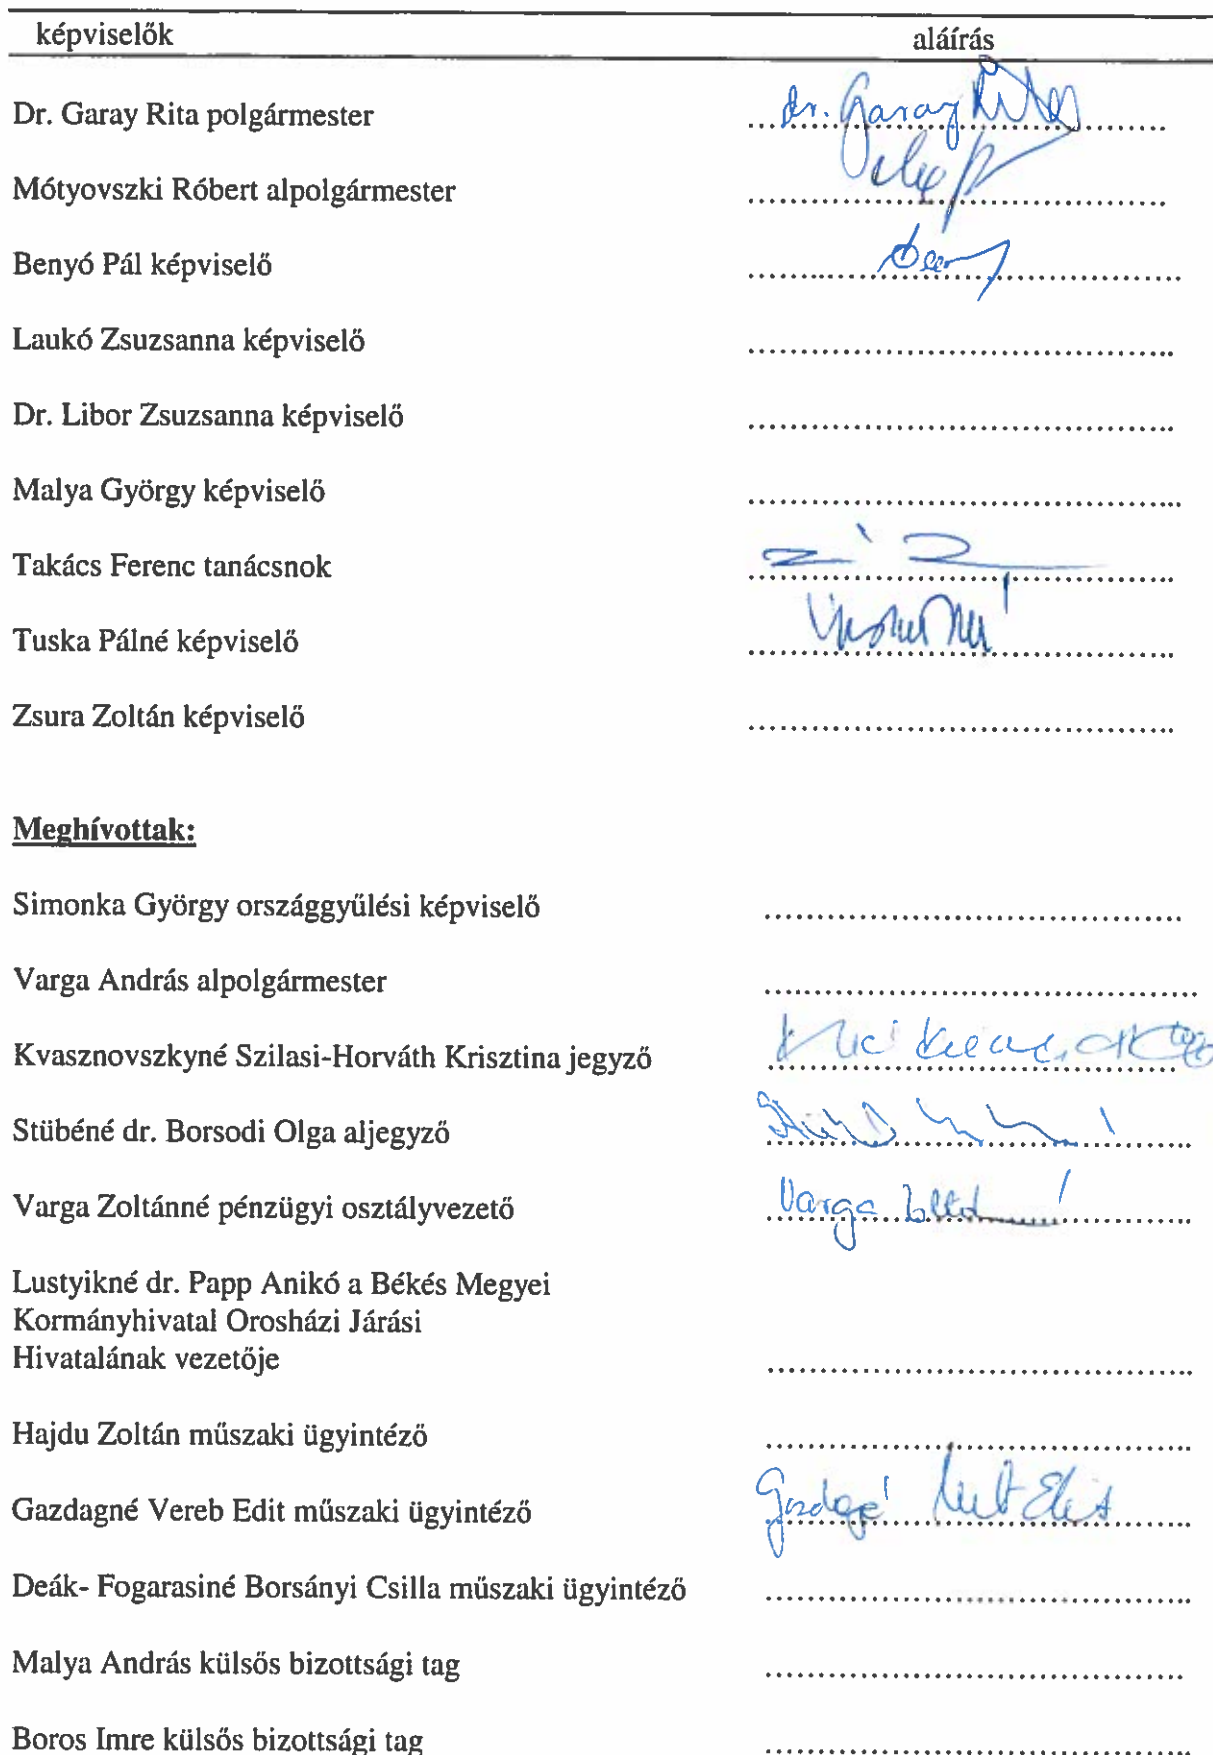 képviselők aláírás
Dr. Garay Rita polgármester dr. Garay Rita
Mótyovszki Róbert alpolgármester
Benyó Pál képviselő
Laukó Zsuzsanna képviselő
Dr. Libor Zsuzsanna képviselő
Malya György képviselő
Takács Ferenc tanácsnok
Tuska Pálné képviselő
Zsura Zoltán képviselő
Meghívottak:
Simonka György országgyűlési képviselő
Varga András alpolgármester
Kvasznovszkyné Szilasi-Horváth Krisztina jegyző
Stübéné dr. Borsodi Olga aljegyző
Varga Zoltánné pénzügyi osztályvezető Varga
Lustyikné dr. Papp Anikó a Békés Megyei
Kormányhivatal Orosházi Járási
Hivatalának vezetője
Hajdu Zoltán műszaki ügyintéző
Gazdagné Vereb Edit műszaki ügyintéző
Deák- Fogarasiné Borsányi Csilla műszaki ügyintéző
Malya András külsős bizottsági tag
Boros Imre külsős bizottsági tag